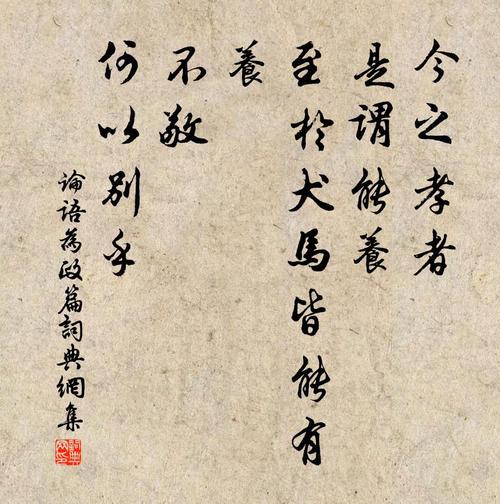 今之孝者
是谓能養
至於犬馬皆能有
養
不敬
何以别乎
論语為政篇詞典網集